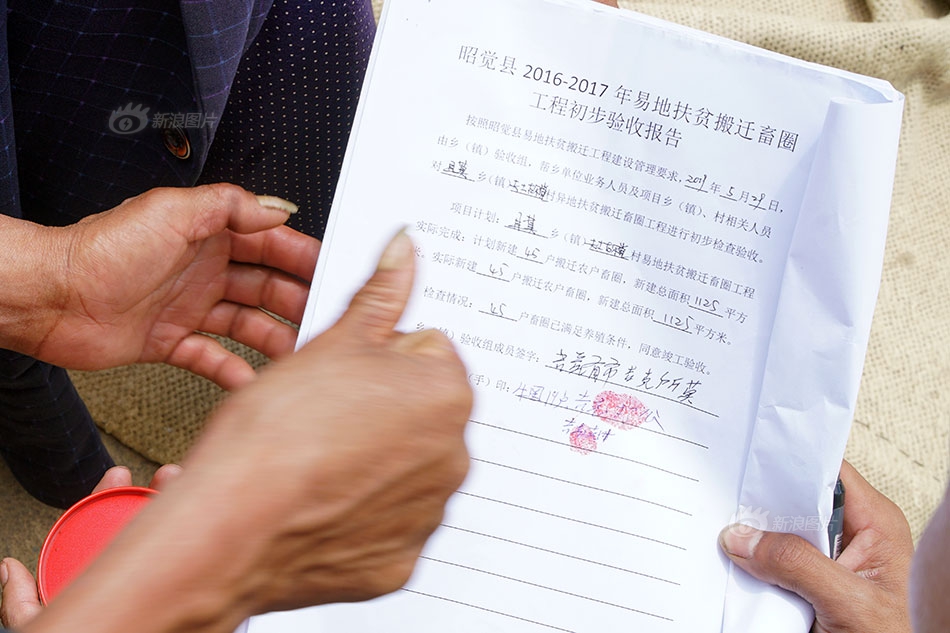 新浪图片
昭觉县 2016-2017 年易地扶贫搬迁畜圈
工程初步验收报告
按照昭觉县易地扶贫搬迁工程建设管理要求, 年 5 月 29 日,
由乡（镇）验收组，帮乡单位业务人员及项目乡（镇）、村相关人员
对 乡（镇） 村异地扶贫搬迁畜圈工程进行初步检查验收。
项目计划： 乡（镇） 村易地扶贫搬迁畜圈工程
实际完成：计划新建 45 户搬迁农户畜圈，新建总面积 1125 平方
米。实际新建 45 户搬迁农户畜圈，新建总面积 1125 平方米。
检查情况： 45 户畜圈已满足养殖条件，同意竣工验收。
乡（镇）验收组成员签字：
（手）印：
新浪图片